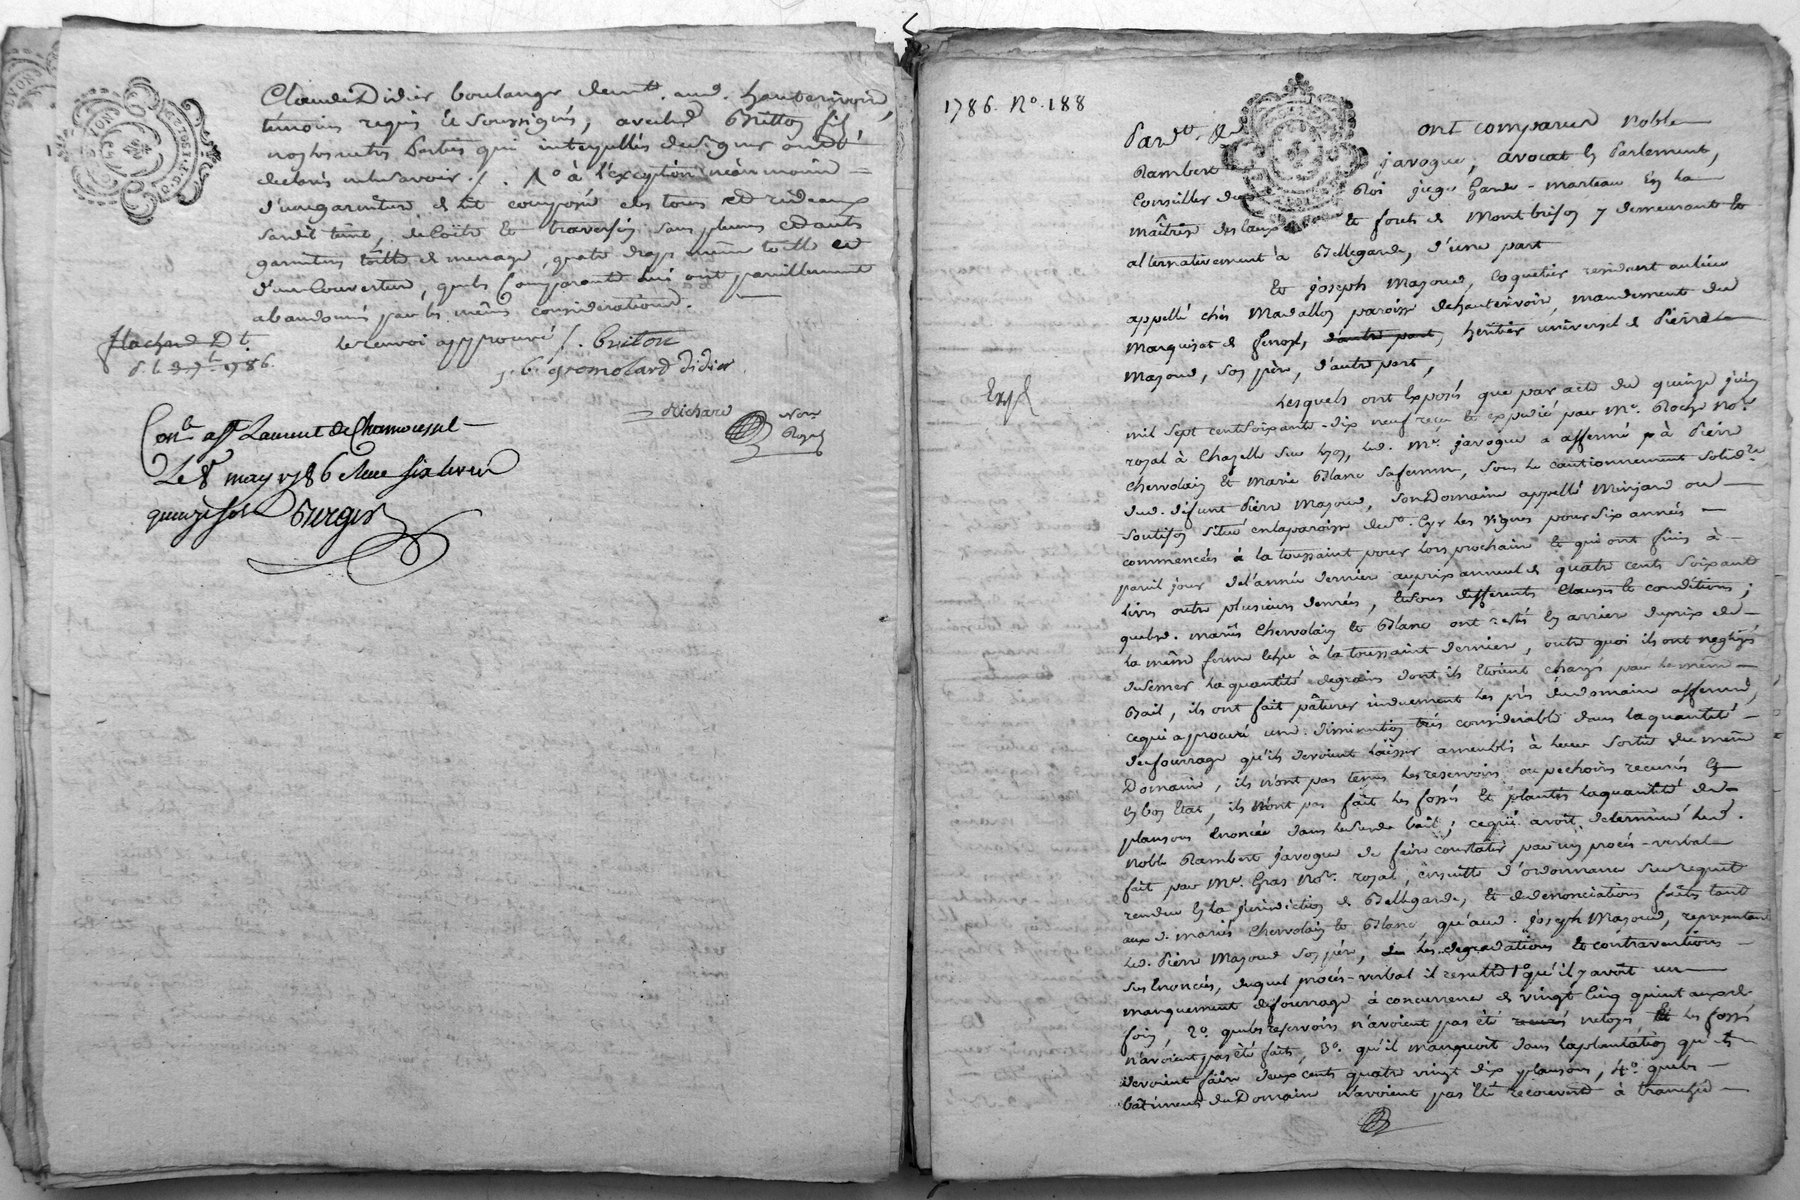 Claude Didier boulanger demt. aud. hauterivoire,
témoins requis et soussignés, avec led. Britton fils
non les autres parties qui interpellés de signer ont
déclaré ne le savoir. /. 1º à l'exception néanmoins
d'une garniture de lit composée des tours et rideaux
sardit teint, de coëtre et traversin sans plumes et dants
garnitures toille de menage, quatre draps même toille et
d'une couverture, que les comparants lui ont pareillement
abandonnés par les mêmes considérations.
le renvoi approuvé /. Briton
j. b. gromolard didier
Richard Nore
Royal
1786.
Conle. a St Laurent de Chamousset
Le 8 may 1786 Reçu six livres
quinze sols Berger
1786. Nº. 188
Pardt. ont comparus noble
Rambert javogue, avocat en Parlement,
Conseiller du Roi juge Garde-marteau en la
maîtrise des eaux et forets de Montbrison y demeurant et
alternativement à Bellegarde, d'une part
Et joseph Mazoud, coquetier residant au lieu
appellé chés Madallon paroisse de hauterivoire, mandement du
Marquisat de fenoyl, d'autre part, heritier universel de Pierre
Mazoud, son père, d'autre part,
Exp
Lesquels ont exposés que par acte du quinze juin
mil sept cent soixante-dix neuf reçu et expedié par Me. Roche Nore.
royal à Chazelle sur Lyon, led. Me. javogue a affermé à Pierre
Chevolain et Marie Blanc sa femme, sous le cautionnement solidre.
dud. défunt Pierre Mazoud, son Domaine appellé Minjard ou
Soutison situé en la paroisse de St. Cyr les vignes pour six années
commencées à la toussaint pour lors prochaine et qui ont finies à
pareil jour de l'année dernier au prix annuel de quatre cents soixante
livres outre plusieurs denrées, et sous differents clauses et conditions;
que lesd. mariés Chevolain et Blanc ont restés en arriere du prix de
la même ferme échu à la toussaint dernier, outre quoi ils ont negligés
de semer la quantité de grains dont ils étoient chargés par le même
Bail, ils ont fait pâturer induement les prés du domaine affermé,
ce qui a procuré une diminution très considerable dans la quantité
de fourrage qu'ils devoient laisser ameublis à leur sortie du même
Domaine, ils n'ont pas tenus les reservoirs ou pechoirs recurés et
en bon état, ils n'ont pas fait les fossés et plantés la quantité de
plansons énoncée dans le susd. bail; ce qui avoit determiné led.
noble Rambert javogue de faire constater par un procès-verbal
fait par Me. Gras Nore. royal, ensuitte d'ordonnance sur requête
rendue en la jurisdiction de Bellegarde, et de denonciations faites tant
aux d. mariés Chevolain et Blanc, qu'aud. joseph Mazoud, representant
led. Pierre Mazoud son père, les degradations et contraventions
sus énoncées, duquel procès-verbal il resulte 1º qu'il y avoit un
manquement de fourrage à concurrence de vingt cinq quintaux de
foin, 2º. que les reservoirs n'avoient pas été recurés netoyés et les fossés
n'avoient pas été faits, 3º. qu'il manquoit dans la plantation qu'ils
devoient faire deux cents quatre vingt dix plansons, 4º. que les
bâtiments du Domaine n'avoient pas été recouverts à tranchée